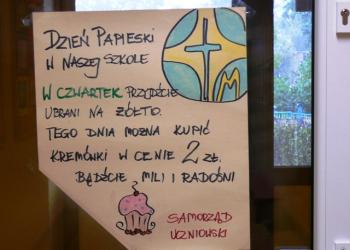 DZIEŃ PAPIESKI
W NASZEJ SZKOLE
W CZWARTEK PRZYJDŹCIE
UBRANI NA ŻÓŁTO.
TEGO DNIA MOŻNA KUPIĆ
KREMÓWKI W CENIE 2 ZŁ.
BĄDŹCIE MILI I RADOŚNI
SAMORZĄD
UCZNIOWSKI
M